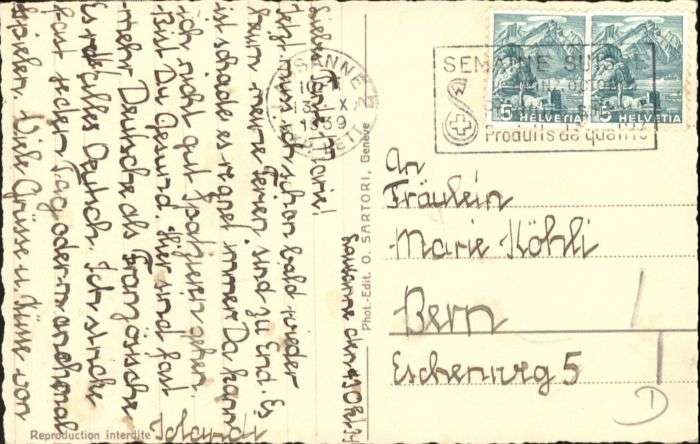 Lausanne den
Liebe Tante Marie!
Jetzt muss ich schon bald wieder
heim meine Ferien sind zu End. Es
ist schade es regnet immer Da kann
ich nicht gut Spatzieren gehen.
Bist Du Gesund. Hier sind fast
mehr Deutsche als Französische
Es redet alles Deutsch. Ich stricke
fast jeden Tag oder manchmal
spielen. Viele Grüsse u. Küsse von
Reproduction interdite
Phot.-Edit. O. SARTORI, Genève
LAUSANNE
X
1939
SEMAINE SUISSE
Produits de qualité
5 HELVETIA
5 HELVETIA
An
Fräulein
Marie Köhli
Bern
Eschenweg 5